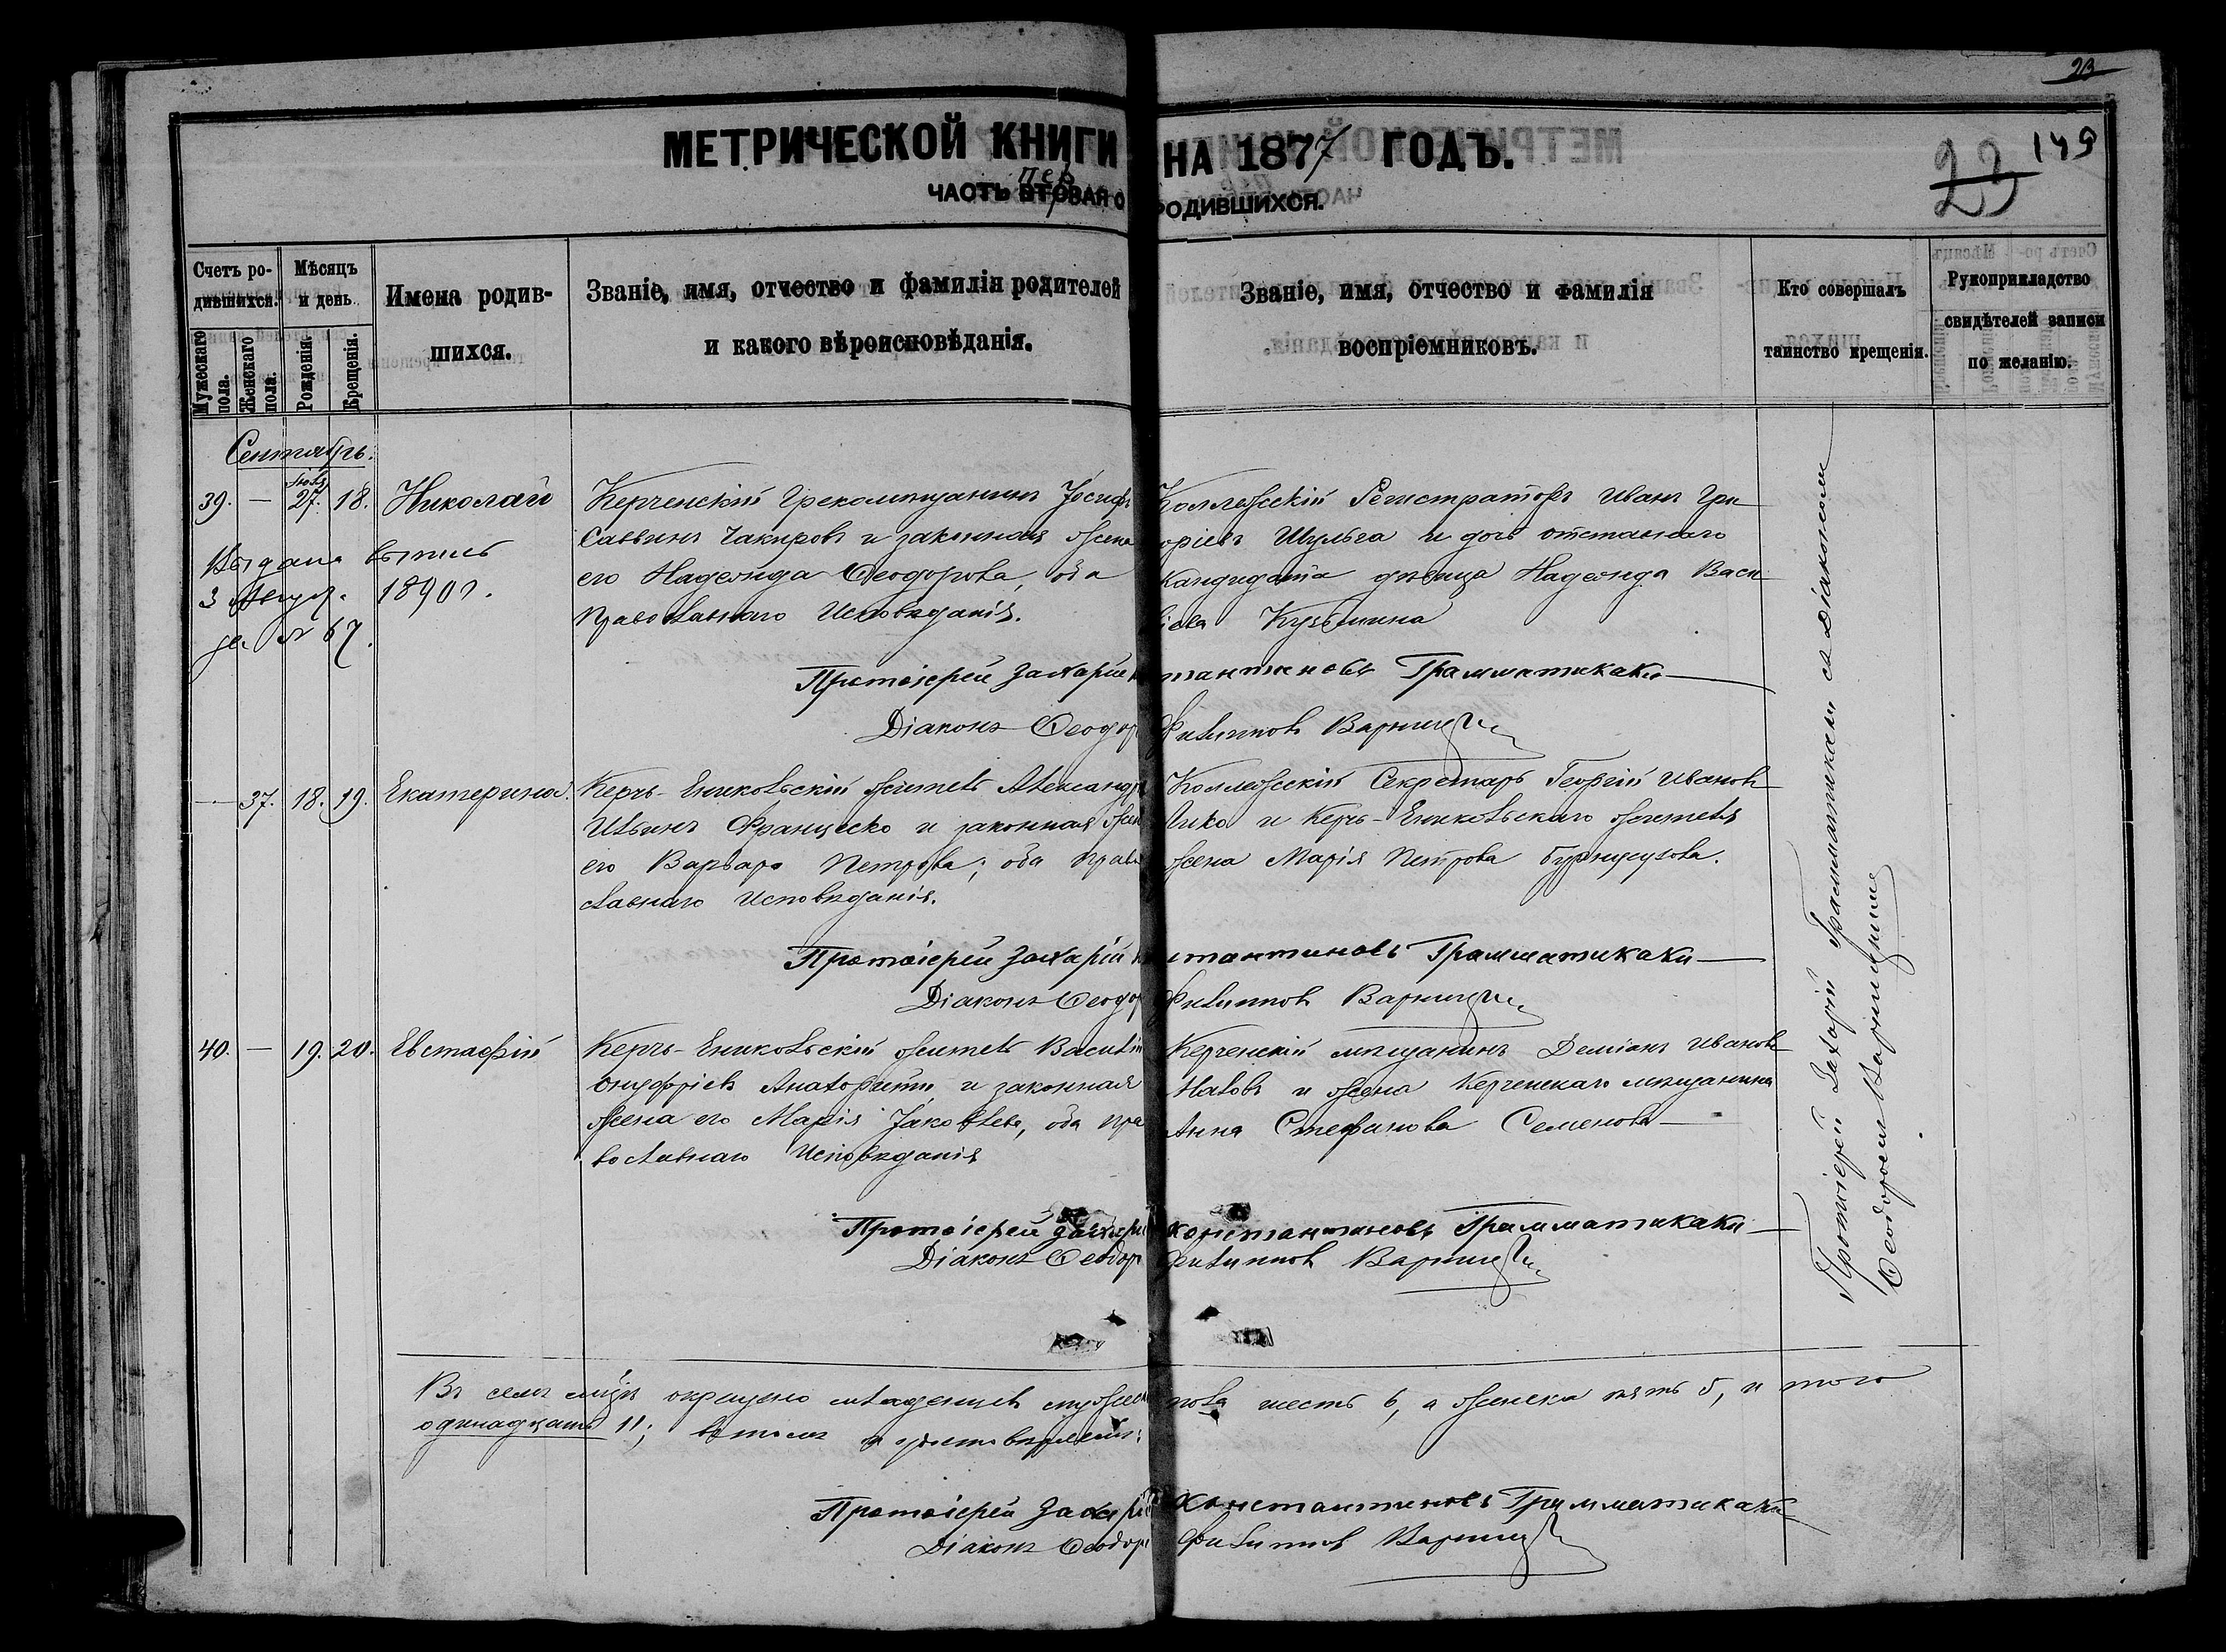 23
МЕТРИЧЕСКОЙ КНИГИ НА 1877 ГОДЪ.
23 149
пер
ЧАСТЬ ВТОРАЯ О РОДИВШИХСЯ.
Счетъ ро-
дившихся.
Мужескаго пола.
Женскаго пола.
Мѣсяцъ
и день
Рожденія.
Крещенія.
Имена родив-
шихся.
Званіе, имя, отчество и фамилія родителей
и какого вѣроисповѣданія.
Званіе, имя, отчество и фамилія
воспріемниковъ.
Кто совершалъ
таинство крещенія.
Рукоприкладство
свидѣтелей записи
по желанію.
Сентябрь.
39. — 27. 18. Николай
Керченскій Грекомещанинъ Іосифъ
Саввинъ Чакировъ и законная жена
его Надежда Ѳеодорова, оба
Православнаго Исповѣданія.
Коллежскій Регистраторъ Иванъ Гри
оріевъ Шульга и дочь отставнаго
Кандидата дѣвица Надежда Васи
іева Кузьмина
Выдана выпись
3 Август. 1890 г.
за № 67.
Протоіерей Захарій К стантиновъ Грамматикаки
Діаконъ Ѳеодор Филиппов Варницкій
— 37. 18. 19. Екатерина.
Керчь-Ениколскій житель Александр
Ильинъ Франческо и законная жен
его Варвара Петрова; оба право
славнаго Исповѣданія.
Коллежскій Секретарь Георгій Иванов
Чико и Керчь-Ениколскаго жителя
жена Марія Петрова
Протоіерей Захарій К стантиновъ Грамматикаки
Діаконъ Ѳеодор Филиппов Варницкій
40. — 19. 20. Евстафій
Керчь-Ениколскій житель Василій
Онуфріев и законная
жена его Марія Іаковлева, оба пра
вославнаго Исповѣданія
Керченскій мѣщанинъ Деміанъ Иванов
и жена Керченскаго мѣщанина
Анна Стефанова Семенова
Протоіерей Захарій Константиновъ Грамматикаки
Діаконъ Ѳеодор Филиппов Варницкій
Протоіерей Захарій Грамматикаки съ Діакономъ
Ѳеодоромъ Варницкимъ
Въ семъ мцѣ окрещено младенцев мужеск пола шесть 6, а женска пять 5, и того
одинадцать 11; въ томъ и удостовѣряемъ:
Протоіерей Захарій Константиновъ Грамматикаки
Діаконъ Ѳеодор Филиппов Варницкій